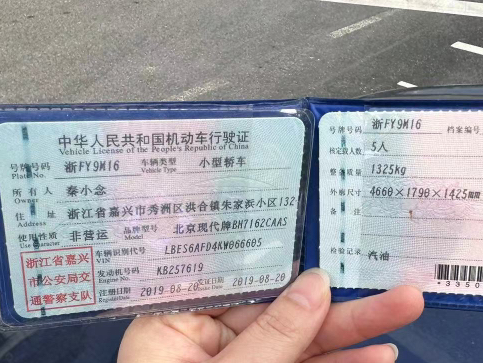 中华人民共和国机动车行驶证
Vehicle License of the People's Republic of China
号牌号码 浙FY9M16 车辆类型 小型轿车
Plate No. Vehicle Type
所有人 秦小念
Owner
住址 浙江省嘉兴市秀洲区洪合镇朱家浜小区132
Address
使用性质 非营运 品牌型号 北京现代牌BH7162CAAS
Use Character Model
浙江省嘉兴
市公安局交
通警察支队
车辆识别代号 LBES6AFD4KW066605
VIN
发动机号码 KB257619
Engine No.
注册日期 2019-08-20 发证日期 2019-08-20
Register Date Issue Date
号牌号码 浙FY9M16 档案编号
核定载人数 5人
整备质量 1325kg
外廓尺寸 4660×1790×1425
备注
检验记录 汽油
*3350